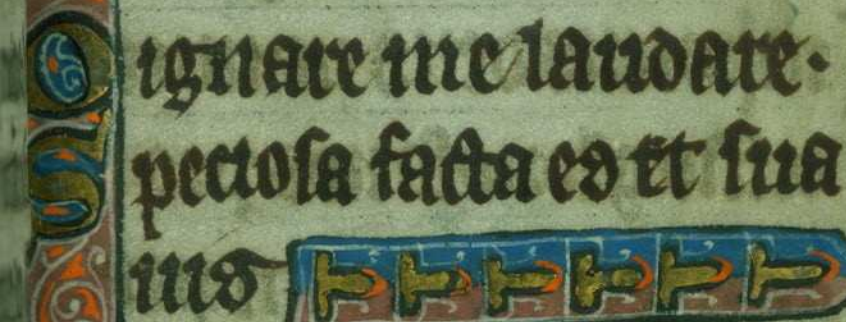 Dignare me laudare.
Speciosa facta es et sua
uis